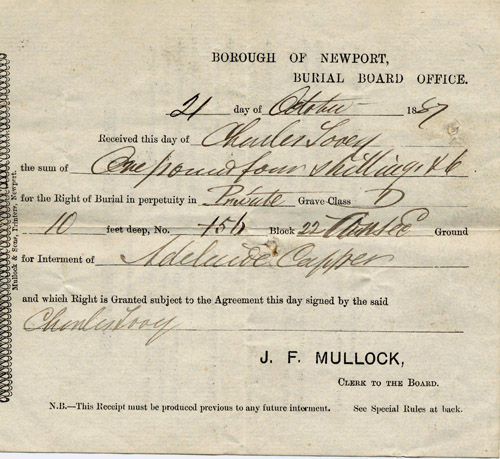 BOROUGH OF NEWPORT,
BURIAL BOARD OFFICE.
21 day of October 1887
Received this day of Charles Tovey
the sum of One pound four shillings & 6
for the Right of Burial in perpetuity in Private Grave Class D
10 feet deep, No. 156 Block 22 Ground
for Interment of Adelaide Capper
and which Right is Granted subject to the Agreement this day signed by the said
Charles Tovey
J. F. MULLOCK,
CLERK TO THE BOARD.
N.B.—This Receipt must be produced previous to any future interment. See Special Rules at back.
Mullock & Sons, Printers, Newport.